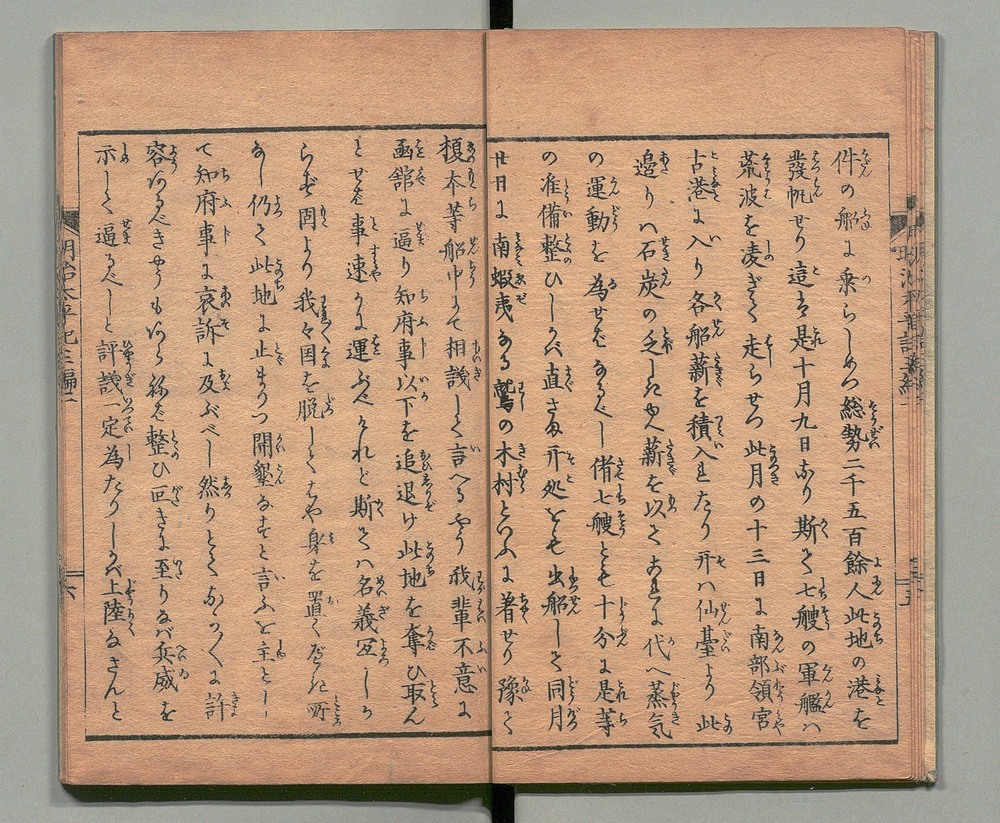 件の船に乗らしめつ総勢二千五百餘人此地の港を
發帆せり這は是十月九日なり斯て七艘の軍艦ハ
荒波を凌ぎて走らせつ此月の十三日に南部領宮
古港に入り各船薪を積入れたり开ハ仙臺より此
邉りハ石炭の乏しき故薪を以てこれに代へ蒸気
の運動を為せるなるべし偖七艘とも十分に是等
の准備整ひしかバ直さま开処をも出船して同月
廿日に南蝦夷なる鷲の木村といふに着せり豫て
榎本等船中にて相議して言へるやう我輩不意に
函館に逼り知府事以下を追退け此地を奪ひ取ん
とせバ事速かに運ぶべけれど斯てハ名義正しか
らず因より我々国を脱してはや身を置くべき所
なし仍て此地に止まりつ開墾なすと言ふを主とし
て知府事に哀訴に及ぶべし然りとてなか〳〵に許
容あるべきやうもあらねバ整ひ叵きに至りなバ兵威を
示して逼るべしと評議一定為たりしかバ上陸なさんと
明治太平記三編二
六